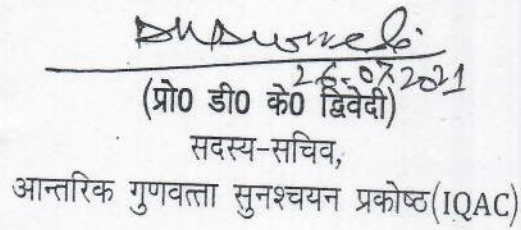 26.07.2021
(प्रो0 डी0 के0 द्विवेदी)
सदस्य-सचिव,
आन्तरिक गुणवत्ता सुनश्चयन प्रकोष्ठ(IQAC)